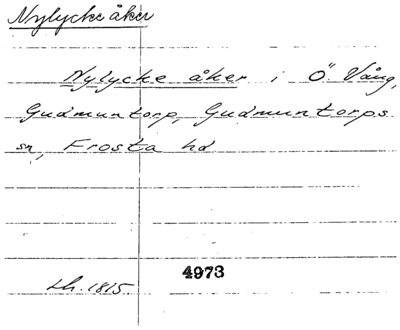 Nylycke åker
Nylycke åker i Ö. Vång,
Gudmuntorp, Gudmuntorps
sn, Frosta hd
4973
Lh. 1815